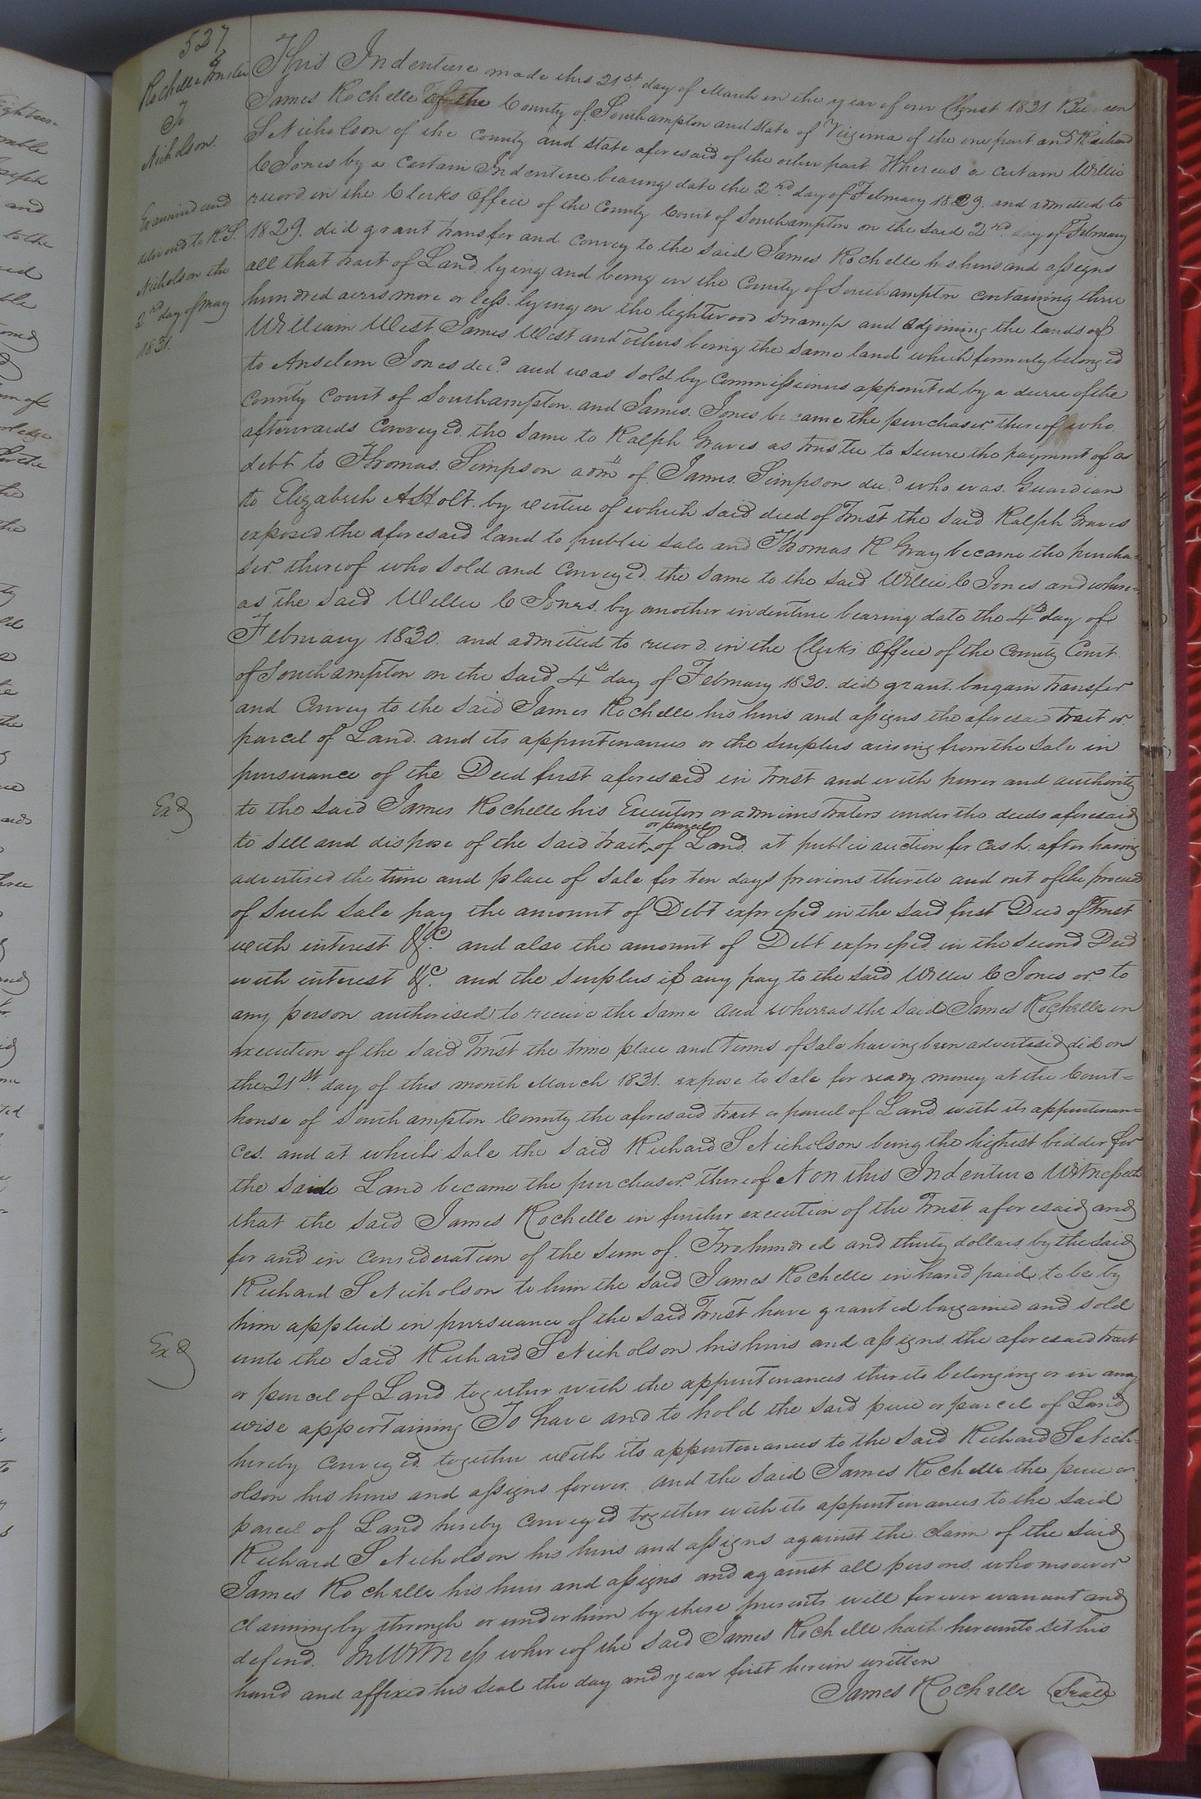 527
Rochelle Trustee
To
Nicholson.
Examined and
delivered to R. S.
Nicholson the
2nd day of May
1831.
This Indenture made this 21st day of March in the year of our Christ 1831 Between
James Rochelle of the County of Southampton and state of Virginia of the one part and Richard
S Nicholson of the County and state aforesaid of the other part Whereas a certain Willie
C Jones by a certain Indenture bearing date the 2nd day of February 1829. and admitted to
record in the Clerks Office of the County Court of Southampton on the said 2nd day of February
1829. did grant transfer and convey to the said James Rochelle his heirs and assigns
all that tract of Land lying and being in the County of Southampton containing three
hundred acres more or less lying on the lightwood swamp and adjoining the lands of
William West James West and others being the same land which formerly belonged
to Anselem Jones decd. and was sold by Commissioners appointed by a decree of the
County Court of Southampton. and James. Jones became the purchaser thereof who
afterwards conveyed the same to Ralph Graves as trustee to secure the payment of a
debt to Thomas. Simpson adm of James. Simpson decd who was Guardian
to Elizabeth A Holt. by virtue of which said deed of Trust the said Ralph Graves
exposed the aforesaid land to public sale and Thomas R Gray became the purcha-
ser thereof who sold and conveyed the same to the said Willie C Jones and where-
as the said Willie C Jones. by another indenture bearing date the 4th day of
February 1830. and admitted to record in the Clerks Office of the County Court
of Southampton on the said 4th day of February 1830. did grant. bargain transfer
and convey to the said James Rochelle his heirs and assigns the aforesaid tract or
parcel of Land. and its appurtenances or the surplus arising from the sale in
pursuance of the Deed first aforesaid in trust and with power and authority
Exd
to the said James Rochelle his Executors or administrators under the deeds aforesaid
to sell and dispose of the said tract or parcel of Land at public auction for cash. after having
advertised the time and place of sale for ten days previous thereto and out of the proceeds
of such sale pay the amount of Debt expressed in the said first Deed of Trust
with interest &c. and also the amount of Debt expressed in the second Deed
with interest &c. and the surplus if any pay to the said Willie C Jones or to
any person authorised to receive the same and whereas the said James Rochelle in
execution of the said Trust the time place and terms of sale having been advertised did on
the 21st. day of this month March 1831. expose to sale for ready money at the Court-
house of Southampton County the aforesaid tract or parcel of Land with its appurtenan-
ces. and at which sale the said Richard S Nicholson being the highest bidder for
the said Land became the purchaser thereof Now this Indenture Witnesseth
that the said James Rochelle in further execution of the Trust aforesaid and
for and in consideration of the sum of. Two hundred and thirty dollars by the said
Richard S Nicholson to him the said James Rochelle in hand paid to be by
him applied in pursuance of the said Trust have granted bargained and sold
Exd
unto the said Richard S Nicholson his heirs and assigns the aforesaid tract
or parcel of Land together with the appurtenances thereto belonging or in any
wise appertaining To have and to hold the said piece or parcel of Land
hereby conveyed together with its appurtenances to the said Richard S Nich-
olson his heirs and assigns forever. and the said James Rochelle the piece or
parcel of Land hereby conveyed together with its appurtenances to the said
Richard S Nicholson his heirs and assigns against the claim of the said
James Rochelle his heirs and assigns and against all persons whomsoever
claiming by through or under him by these presents will forever warrant and
defend. In Witness whereof the said James Rochelle hath hereunto set his
hand and affixed his seal the day and year first herein written
James Rochelle Seal